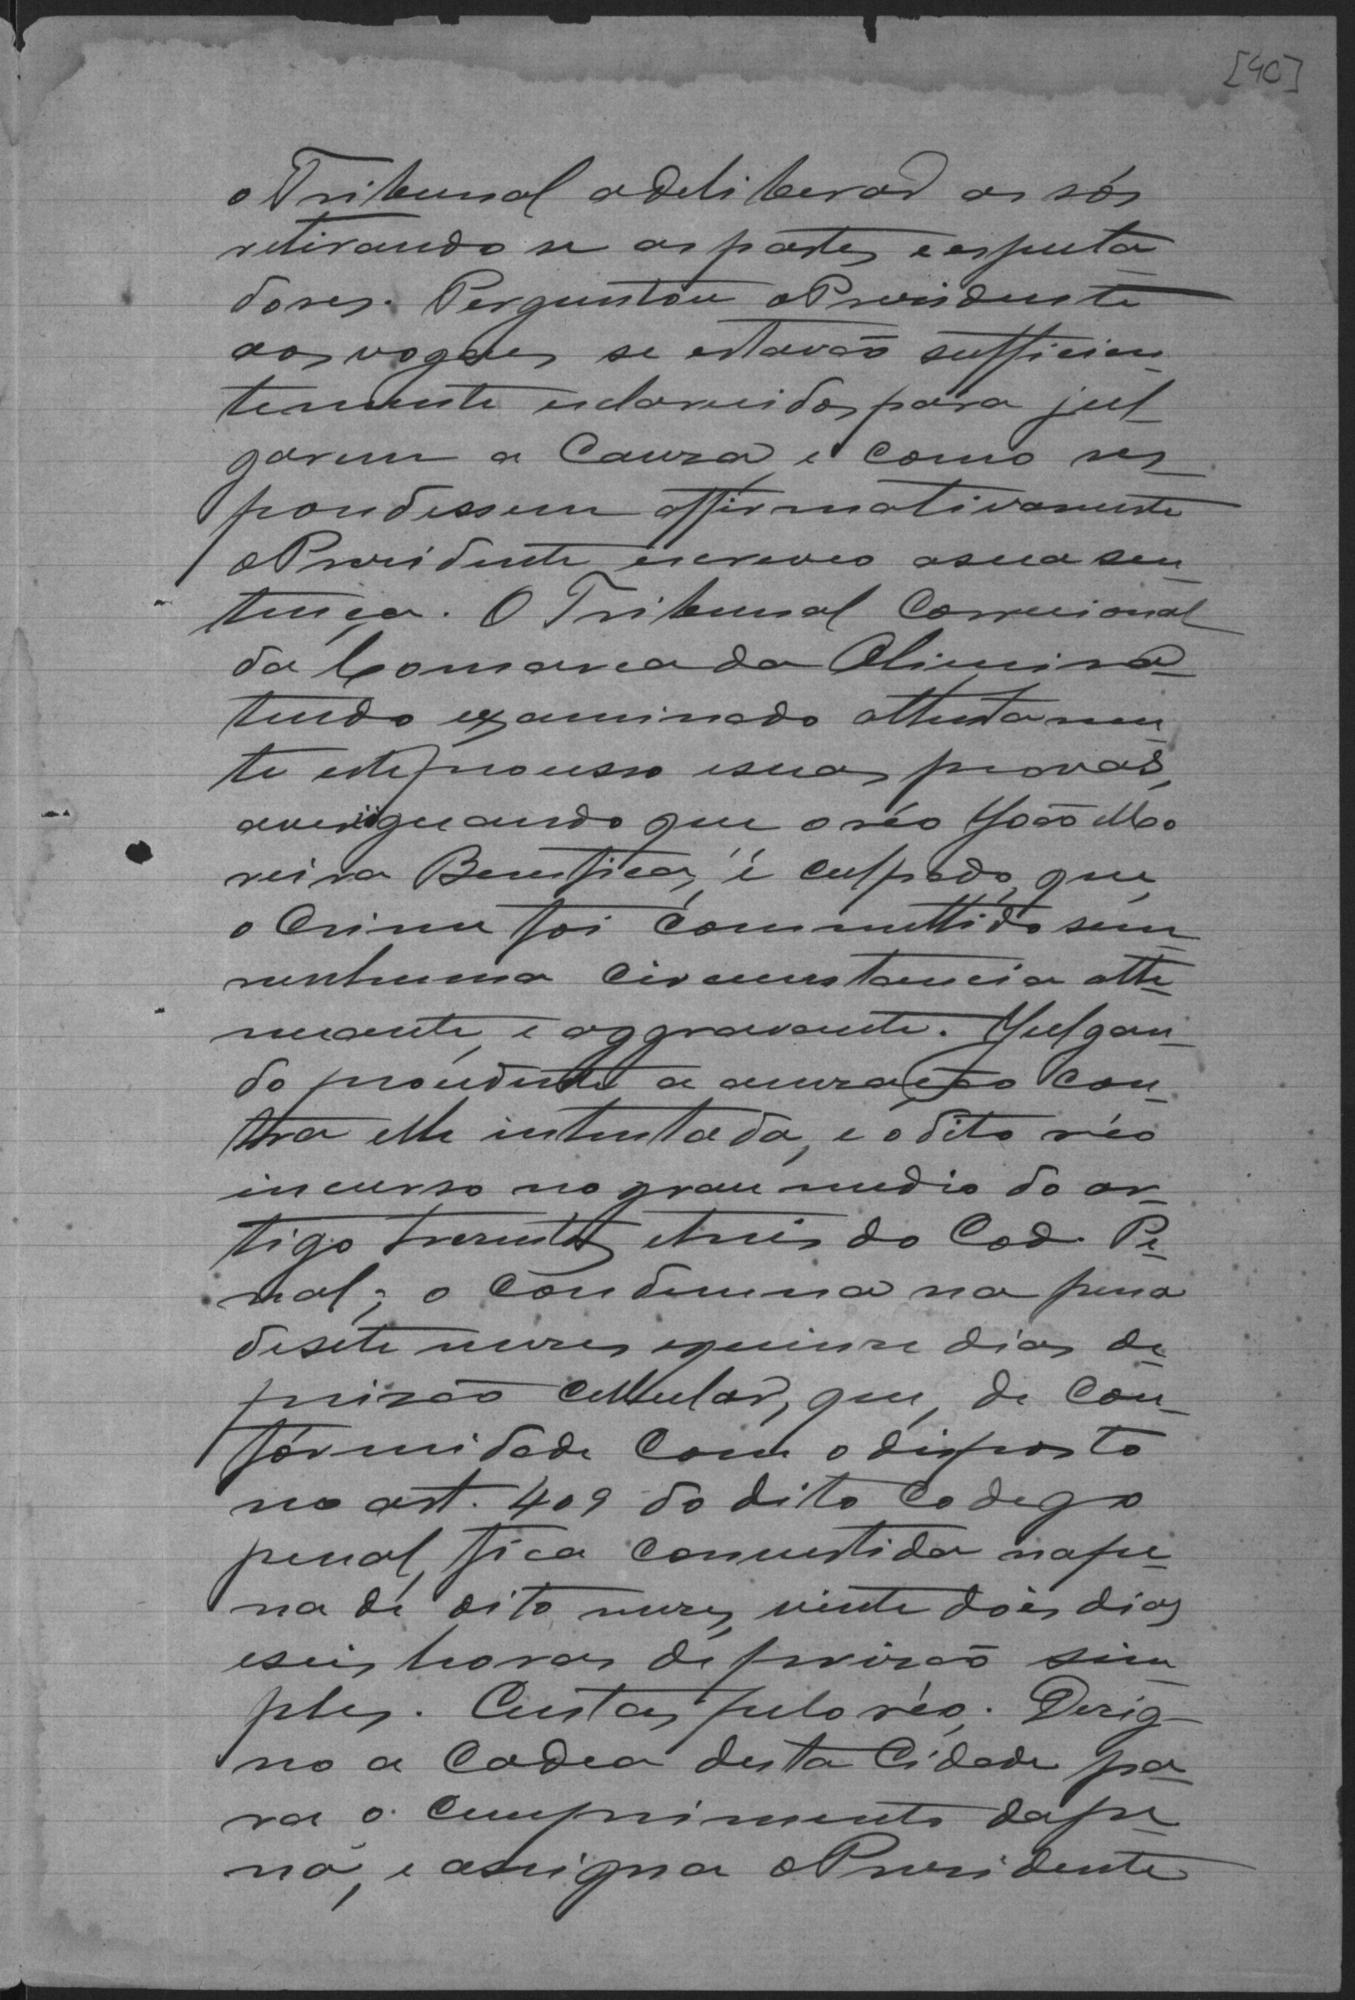 [40]
o Tribunal a deliberar as sós
retirando se as partes e especta
dores. Perguntou o Presidente
aos vogaes se estavão sufficien
temente esclarecidos para jul
garem a Cauza e como res
pondessem affirmativamente
o Presidente escreveo a sua sen
tença. O Tribunal Correcional
da Comarca da
tendo examinado attentamen
te este processo e suas provas,
averiguando que o réo João Mo
reira Benefica, é culpado, que
o Crime foi Commettido sem
nenhuma Circumstancia atte
nuante, e aggravante. Julgan
do procedente a acuzação Con
tra elle intentada, e o dito réo
incurso no grau medio do ar
tigo trezentos e tres do Cod. Pe
nal; o Condemna na pena
de sete mezes e quinze dias de
prizão Cellular, que, de Con
formidade Com o disposto
no art. 409 do dito Codego
penal, fica Convertida na pe
na de oito mezes, vinte dois dias
e seis horas de prizão sim
ples. Custas pelo réo. Dezig
no a Cadea desta Cidade pa
ra o Cumprimento da pe
na, e assigna o Presidente